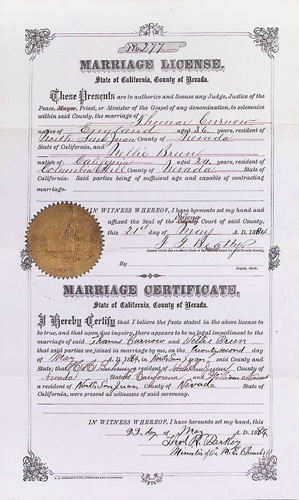 No. 277
MARRIAGE LICENSE.
State of California, County of Nevada.
These Presents are to authorize and license any Judge, Justice of the
Peace, Mayor, Priest, or Minister of the Gospel of any denomination, to solemnize
within said County, the marriage of Thomas Curnow
native of England aged 36 years, resident of
North San Juan County of Nevada
State of California, and Nellie Breen
native of California aged 29 years, resident of
Columbia Hill County of Nevada State of
California. Said parties being of sufficient age and capable of contracting
marriage.
IN WITNESS WHEREOF, I have hereunto set my hand and
affixed the Seal of the Superior Court of said County,
this 21st day of May A. D. 1884
By
Deputy Clerk.
MARRIAGE CERTIFICATE.
State of California, County of Nevada.
I Hereby Certify that I believe the facts stated in the above license to
be true, and that upon due inquiry, there appears to be no legal impediment to the
marriage of said Thomas Curnow and Nellie Breen
that said parties were joined in marriage by me, on the twenty second day
of May A. D. 1884, in North San Juan said County and
State; that a resident of North San Juan County of
Nevada State of California and
a resident of North San Juan County of Nevada State of
California, were present as witnesses of said ceremony.
IN WITNESS WHEREOF, I have hereunto set my hand this
23 day of May A. D. 1884.
Minister of the M. E. Church